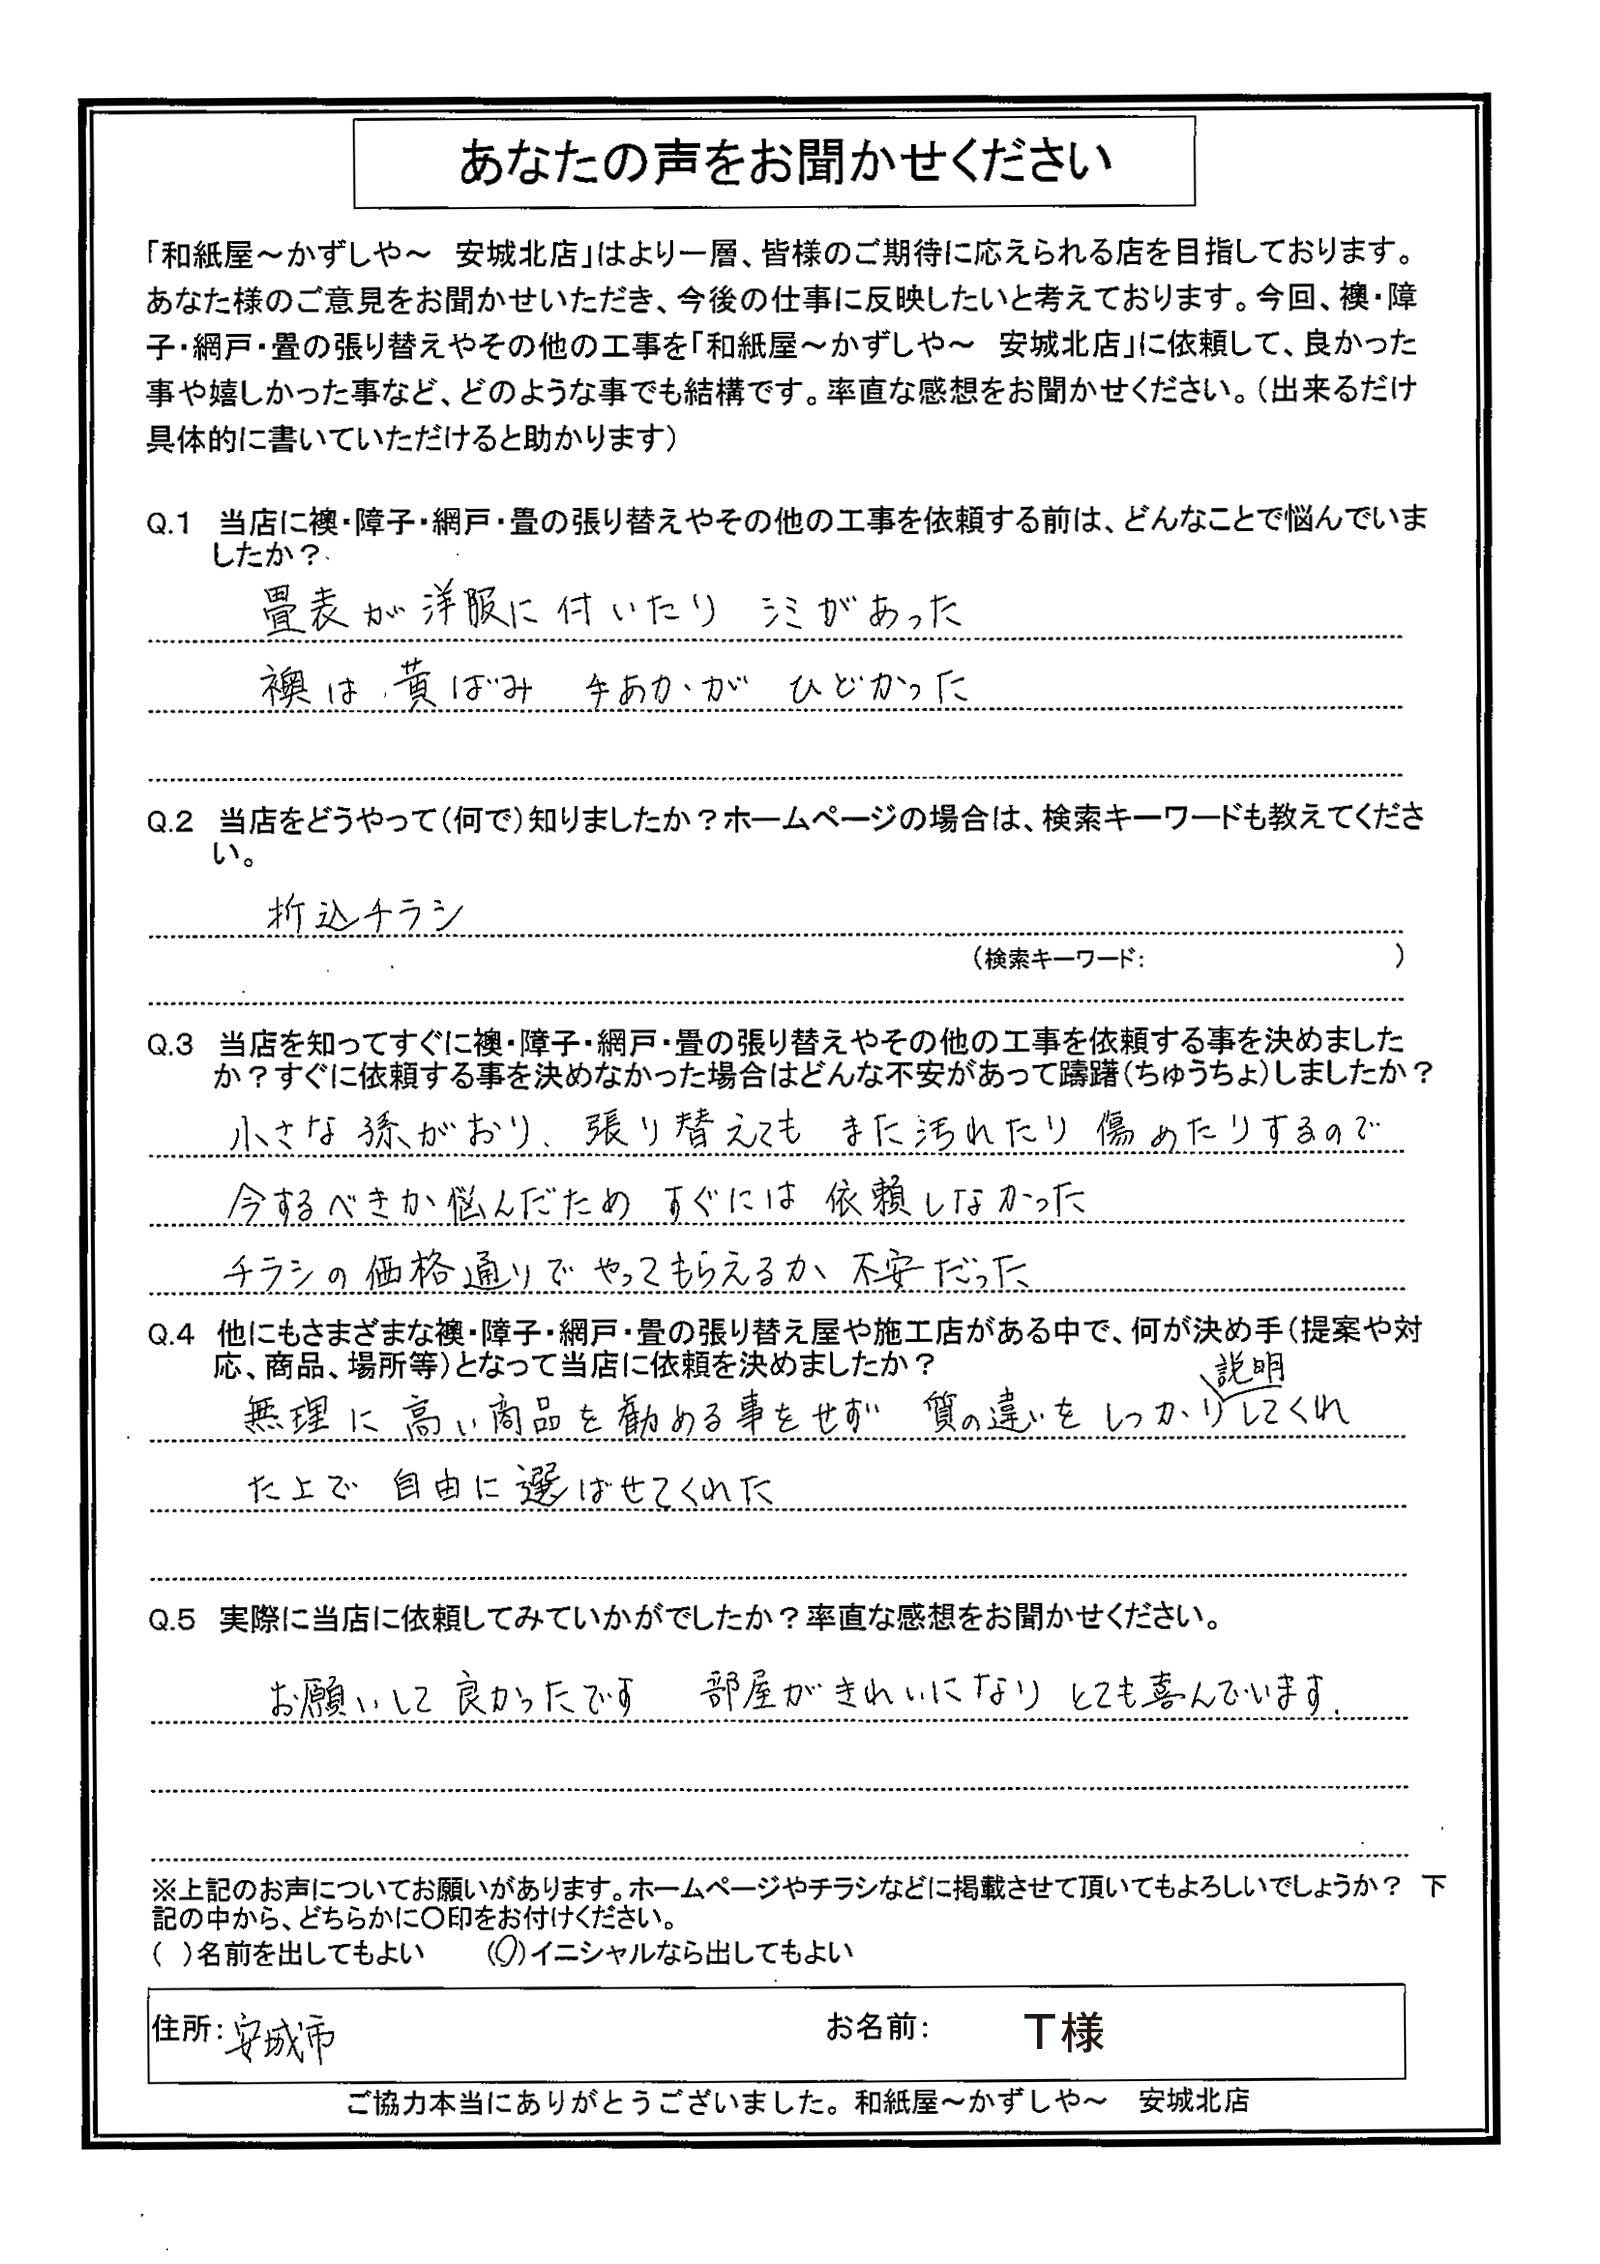 あなたの声をお聞かせください
「和紙屋～かずしや～　安城北店」はより一層、皆様のご期待に応えられる店を目指しております。
あなた様のご意見をお聞かせいただき、今後の仕事に反映したいと考えております。今回、襖・障
子・網戸・畳の張り替えやその他の工事を「和紙屋～かずしや～　安城北店」に依頼して、良かった
事や嬉しかった事など、どのような事でも結構です。率直な感想をお聞かせください。（出来るだけ
具体的に書いていただけると助かります）
Q.1　当店に襖・障子・網戸・畳の張り替えやその他の工事を依頼する前は、どんなことで悩んでいま
したか？
畳表が洋服に付いたり　シミがあった
襖は黄ばみ　手あかがひどかった
Q.2　当店をどうやって（何で）知りましたか？ホームページの場合は、検索キーワードも教えてくださ
い。
折込チラシ
（検索キーワード：　　　　　　　　）
Q.3　当店を知ってすぐに襖・障子・網戸・畳の張り替えやその他の工事を依頼する事を決めました
か？すぐに依頼する事を決めなかった場合はどんな不安があって躊躇（ちゅうちょ）しましたか？
小さな孫がおり、張り替えても また汚れたり 傷めたりするので
今するべきか悩んだため すぐには 依頼しなかった
チラシの価格通りで やってもらえるか 不安だった
Q.4　他にもさまざまな襖・障子・網戸・畳の張り替え屋や施工店がある中で、何が決め手（提案や対
応、商品、場所等）となって当店に依頼を決めましたか？
無理に 高い商品を勧める事をせず 質の違いを しっかり説明してくれ
た上で 自由に選ばせてくれた
Q.5　実際に当店に依頼してみていかがでしたか？率直な感想をお聞かせください。
お願いして 良かったです　部屋がきれいになり とても喜んでいます.
※上記のお声についてお願いがあります。ホームページやチラシなどに掲載させて頂いてもよろしいでしょうか？　下
記の中から、どちらかに〇印をお付けください。
（　）名前を出してもよい　　（〇）イニシャルなら出してもよい
住所：安城市　　お名前：　T様
ご協力本当にありがとうございました。和紙屋～かずしや～　安城北店